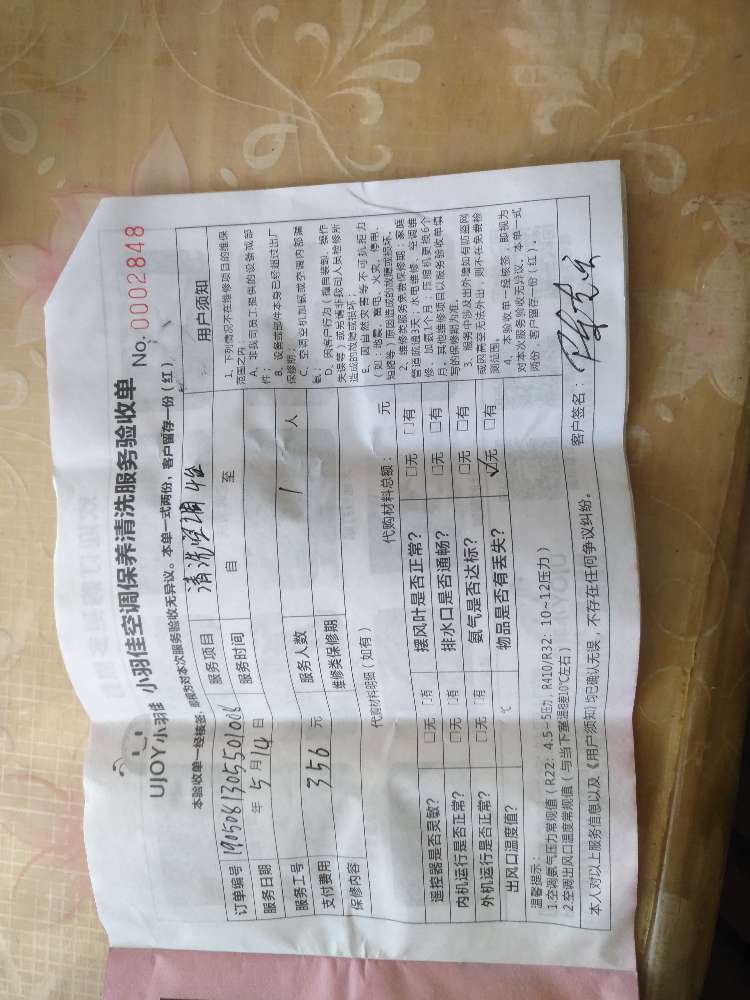 UJOY小羽佳 小羽佳空调保养清洗服务验收单 No. 0002848
本验收单一经核签,即视为对本次服务验收无异议。本单一式两份,客户留存一份(红)
订单编号 190508130550100 服务项目 清洗空调
服务日期 年 5 月 14 日 服务时间 自 至
服务工号 服务人数 1 人
支付费用 356 元 维修类保修期
保修内容
代购材料明细(如有) 代购材料总额: 元
遥控器是否灵敏? □无 □有 摆风叶是否正常? □无 □有
内机运行是否正常? □无 □有 排水口是否通畅? □无 □有
外机运行是否正常? □无 □有 氨气是否达标? □无 □有
出风口温度值? ℃ 物品是否有丢失? ☑无 □有
用户须知
1、下列情况不在维修项目的维保
范围之内:
A、非我司员工提供的设备或部
件;
B、设备或部件本身已经超过出厂
保修期;
C、空调空机加氨或空调内部漏
氨;
D、因客户行为(擅自装卸、操作
失误等)或另请非我司人员检修所
造成的故障或损坏
E、因自然灾害等不可抗拒力
(如:地震、雷电、火灾、停电、
短路等)原因造成的故障或损坏。
2、维修类服务免费保修期:家庭
管道疏通3天;水电维修、空调维
修、加氨1个月;压缩机更换6个
月,其他维修项目以服务验收单填
写的保修期为准。
3、服务中涉及出外墙如有防盗网
或因高空无法外出,则不在免费检
测范围。
4、本验收单一经核签,即视为
对本次服务验收无异议。本单一式
两份,客户留存一份(红)。
温馨提示:
1.空调氨气压力常规值(R22: 4.5~5压力, R410/R32: 10~12压力)
2.空调出风口温度常规值(与当下室温相差10℃左右)
本人对以上服务信息以及《用户须知》均已确认无误,不存在任何争议纠纷。 客户签名: